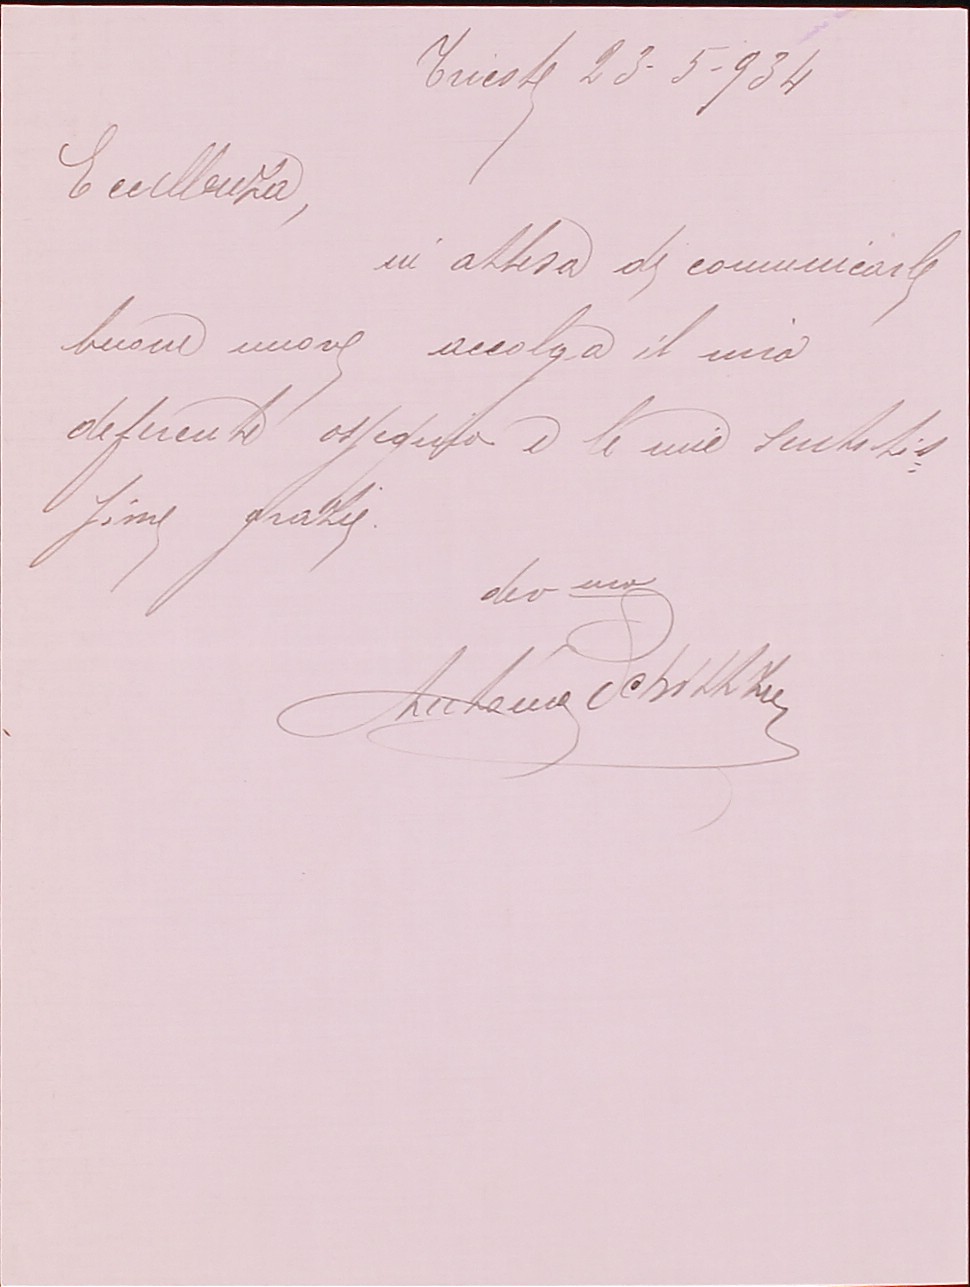 Trieste 23-5-934
Eccellenza,
in attesa di comunicarle
buone nuove accolga il mio
deferente ossequio e le mie sentitis=
sime grazie.
dev mo